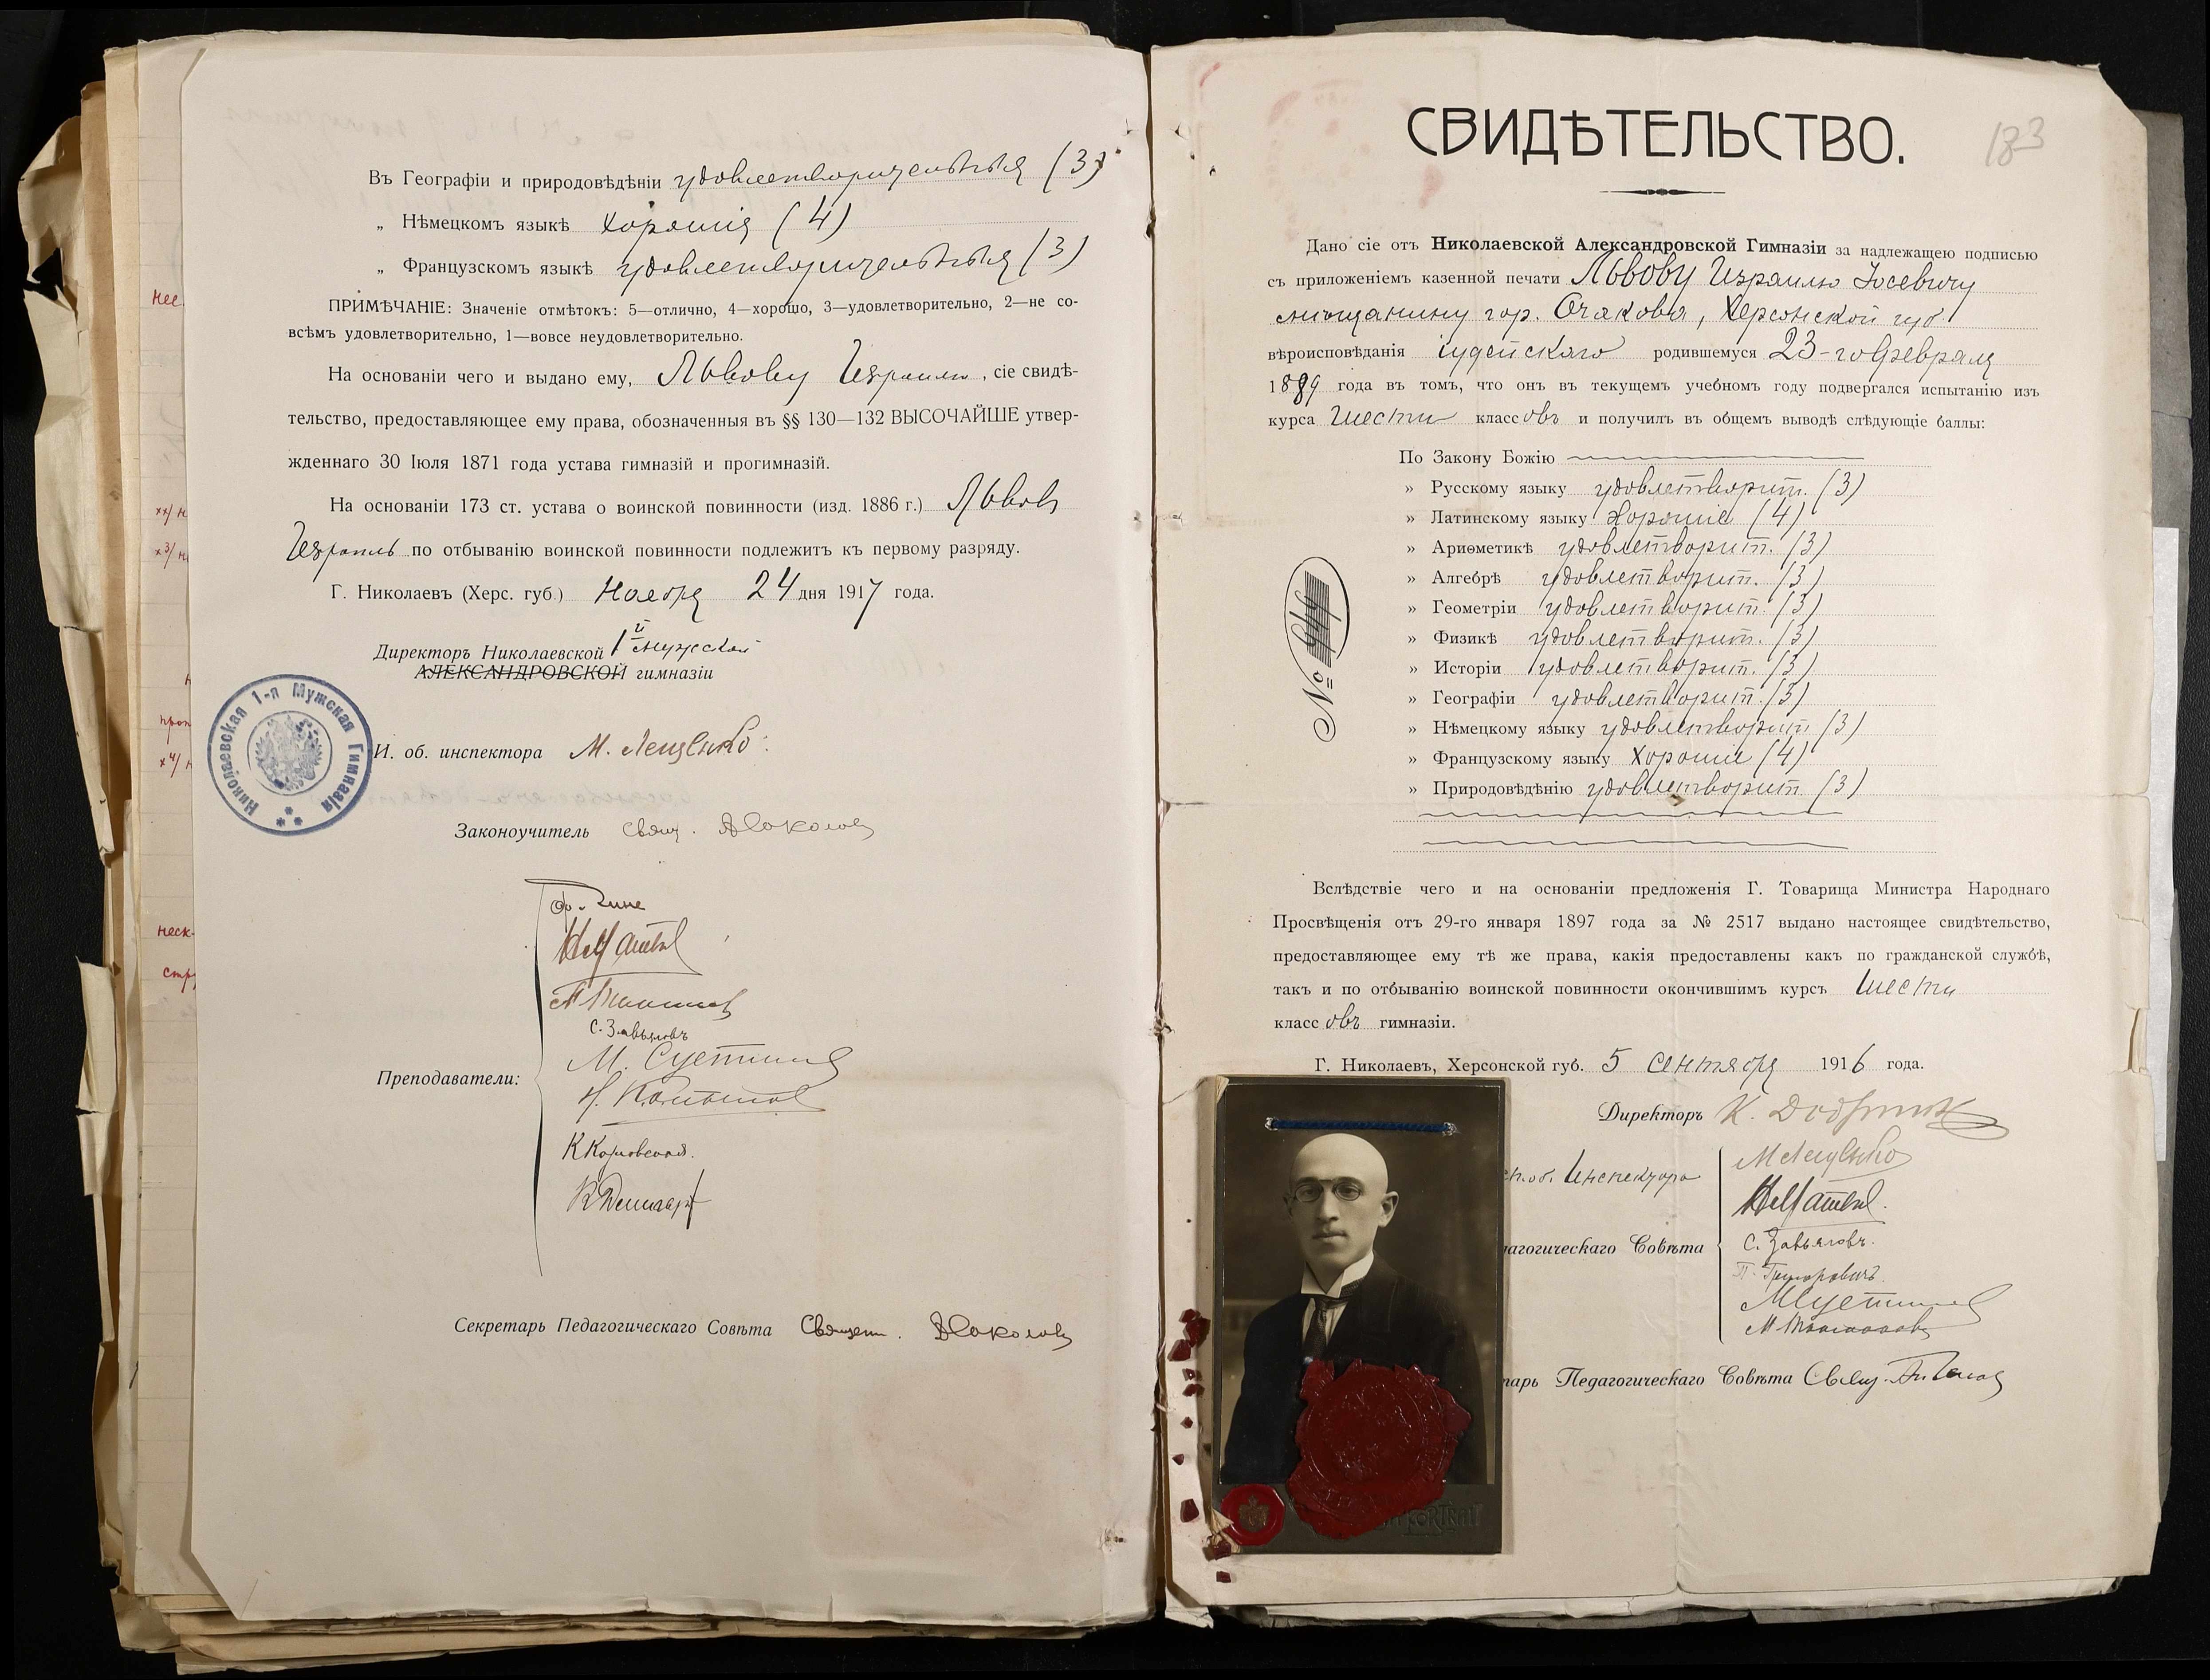 Въ Географіи и природовѣдѣніи удовлетворительныя (3)
„ Нѣмецкомъ языкѣ хорошія (4)
„ Французскомъ языкѣ удовлетворительныя (3)
ПРИМѢЧАНІЕ: Значеніе отмѣтокъ: 5—отлично, 4—хорошо, 3—удовлетворительно, 2—не со-
всѣмъ удовлетворительно, 1—вовсе неудовлетворительно.
На основаніи чего и выдано ему, Львову Израилю, сіе свидѣ-
тельство, предоставляющее ему права, обозначенныя въ §§ 130—132 ВЫСОЧАЙШЕ утвер-
жденнаго 30 Іюля 1871 года устава гимназій и прогимназій.
На основаніи 173 ст. устава о воинской повинности (изд. 1886 г.) Львовъ
Израиль по отбыванію воинской повинности подлежитъ къ первому разряду.
Г. Николаевъ (Херс. губ.) Ноября 24 дня 1917 года.
Директоръ Николаевской 1й мужской
АЛЕКСАНДРОВСКОЙ гимназіи
Николаевская 1-я Мужская Гимназія
И. об. инспектора М. Лещенко
Законоучитель Свящ.
С. Завьяловъ
Преподаватели:
Секретарь Педагогическаго Совѣта Священ.
СВИДѢТЕЛЬСТВО.
183
Дано сіе отъ Николаевской Александровской Гимназіи за надлежащею подписью
съ приложеніемъ казенной печати Львову Израилю Іосевичу
мѣщанину гор. Очакова, Херсонской губ.
вѣроисповѣданія іудейскаго родившемуся 23-го февраля
1889 года въ томъ, что онъ въ текущемъ учебномъ году подвергался испытанію изъ
курса шести классовъ и получилъ въ общемъ выводѣ слѣдующіе баллы:
По Закону Божію
» Русскому языку удовлетворит. (3)
» Латинскому языку Хорошіе (4)
» Ариѳметикѣ удовлетворит. (3)
» Алгебрѣ удовлетворит. (3)
» Геометріи удовлетворит. (3)
» Физикѣ удовлетворит. (3)
» Исторіи удовлетворит. (3)
» Географіи удовлетворит. (3)
» Нѣмецкому языку удовлетворит (3)
» Французскому языку Хорошіе (4)
» Природовѣдѣнію удовлетворит (3)
№ 944
Вслѣдствіе чего и на основаніи предложенія Г. Товарища Министра Народнаго
Просвѣщенія отъ 29-го января 1897 года за № 2517 выдано настоящее свидѣтельство,
предоставляющее ему тѣ же права, какія предоставлены какъ по гражданской службѣ,
такъ и по отбыванію воинской повинности окончившимъ курсъ шести
классовъ гимназіи.
Г. Николаевъ, Херсонской губ. 5 сентября 1916 года.
Директоръ К.
об. Инспектора М Лещенко
агогическаго Совѣта
С. Завьяловъ.
тарь Педагогическаго Совѣта Свящ.